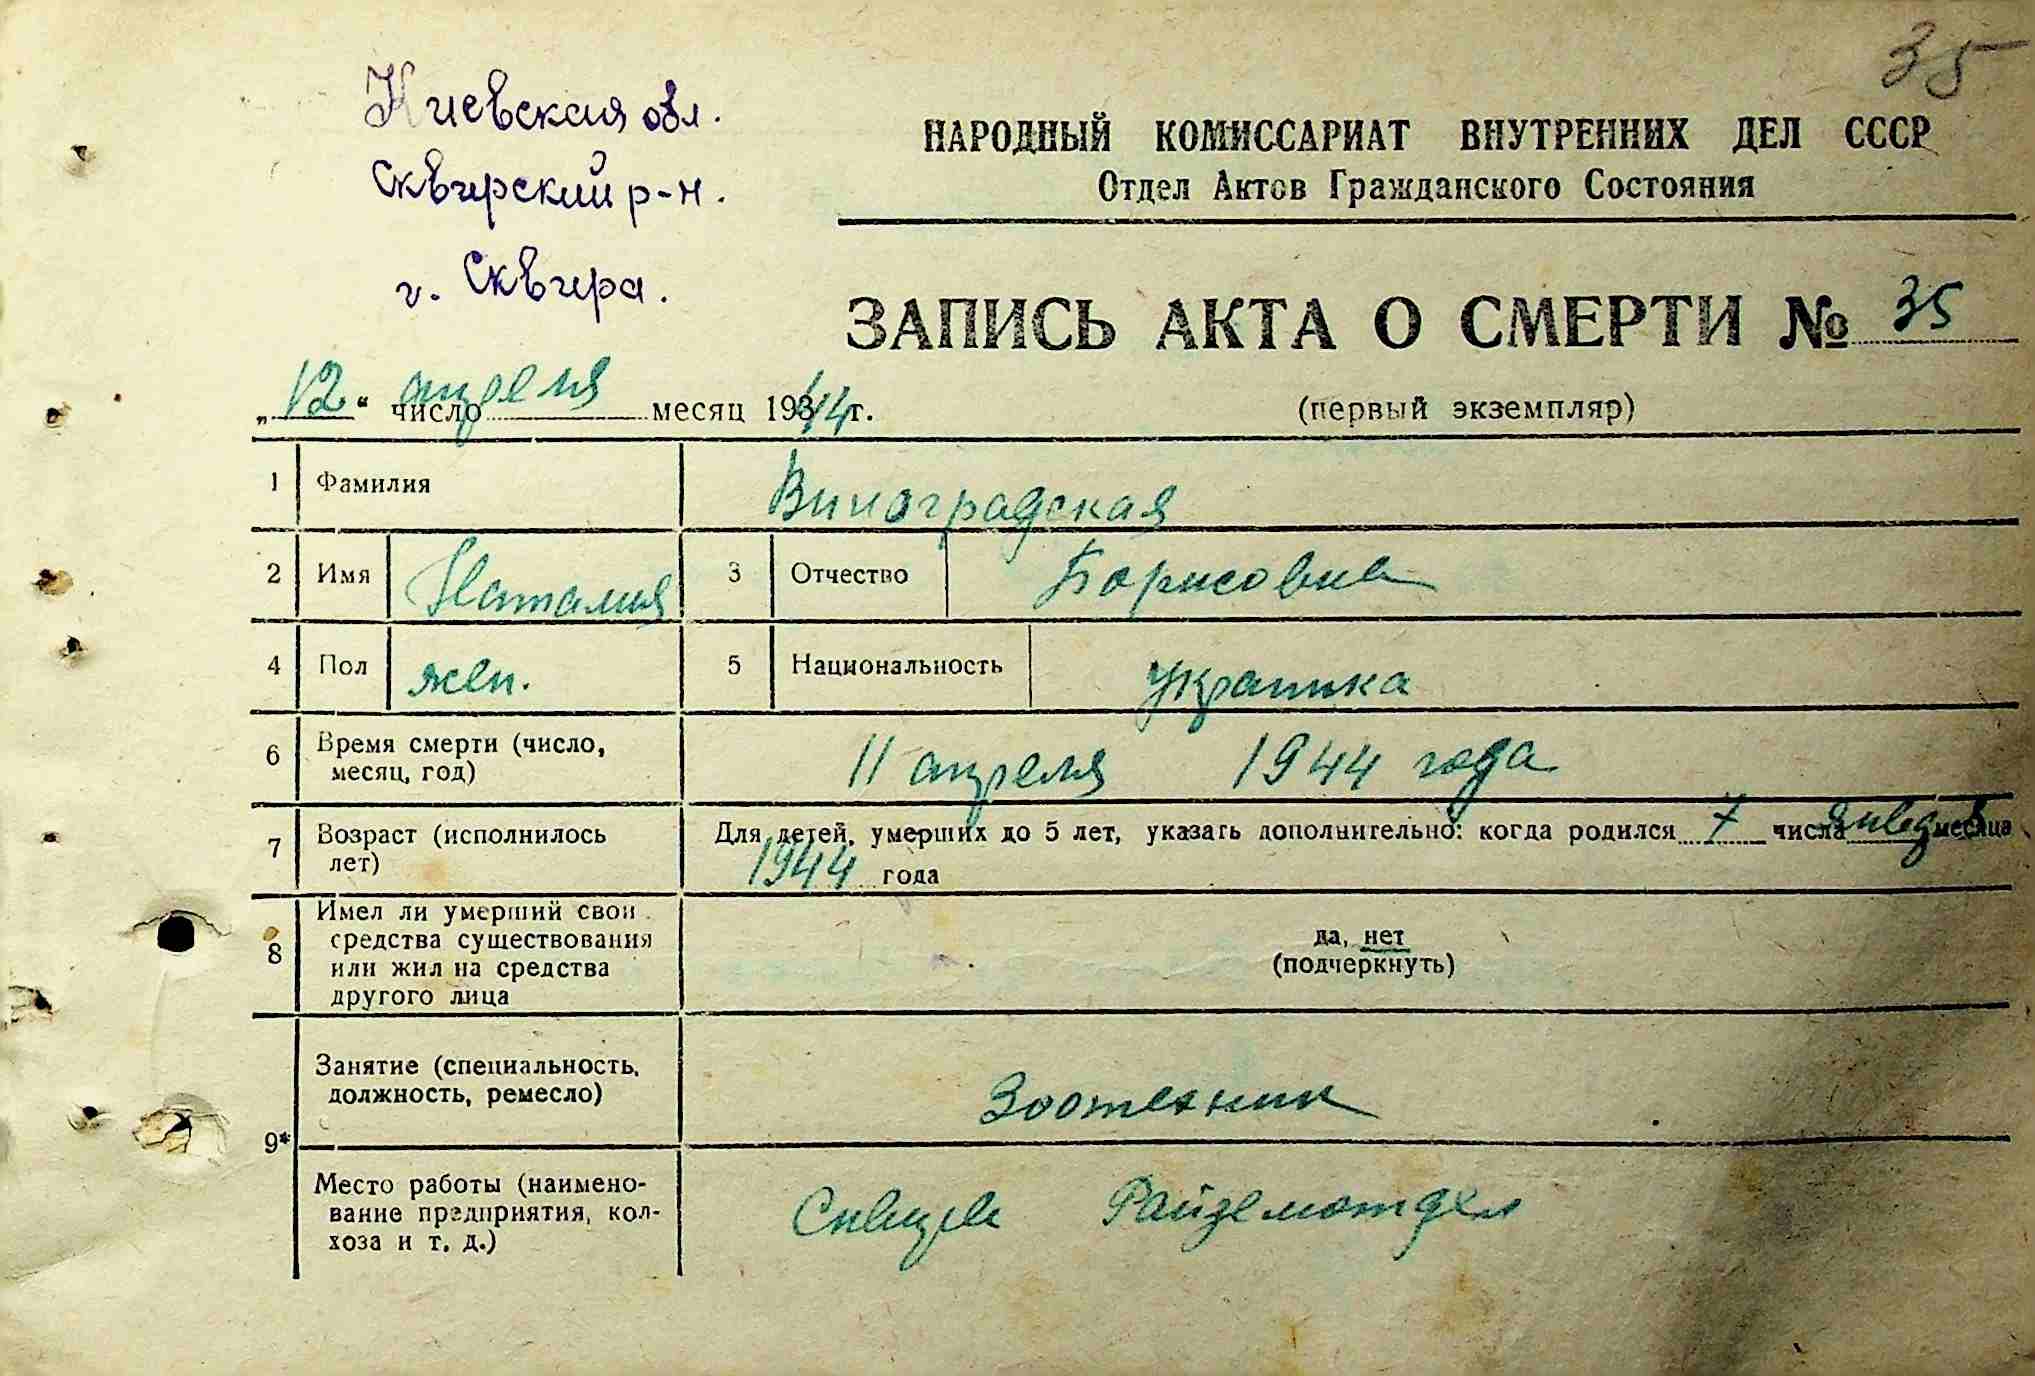 35
Киевская обл.
Сквирский р-н.
г. Сквира.
НАРОДНЫЙ КОМИССАРИАТ ВНУТРЕННИХ ДЕЛ СССР
Отдел Актов Гражданского Состояния
ЗАПИСЬ АКТА О СМЕРТИ № 35
„12“ число апреля месяц 1944 г.
(первый экземпляр)
1 Фамилия Виноградская
2 Имя Наталия 3 Отчество Борисовна
4 Пол жен. 5 Национальность украинка
6 Время смерти (число, месяц, год) 11 апреля 1944 года
7 Возраст (исполнилось лет) Для детей, умерших до 5 лет, указать дополнительно: когда родился 7 числа января месяца
1944 года
8 Имел ли умерший свои средства существования или жил на средства другого лица
да, нет
(подчеркнуть)
9* Занятие (специальность, должность, ремесло) Зоотехник
Место работы (наименование предприятия, колхоза и т. д.) Райземотдел